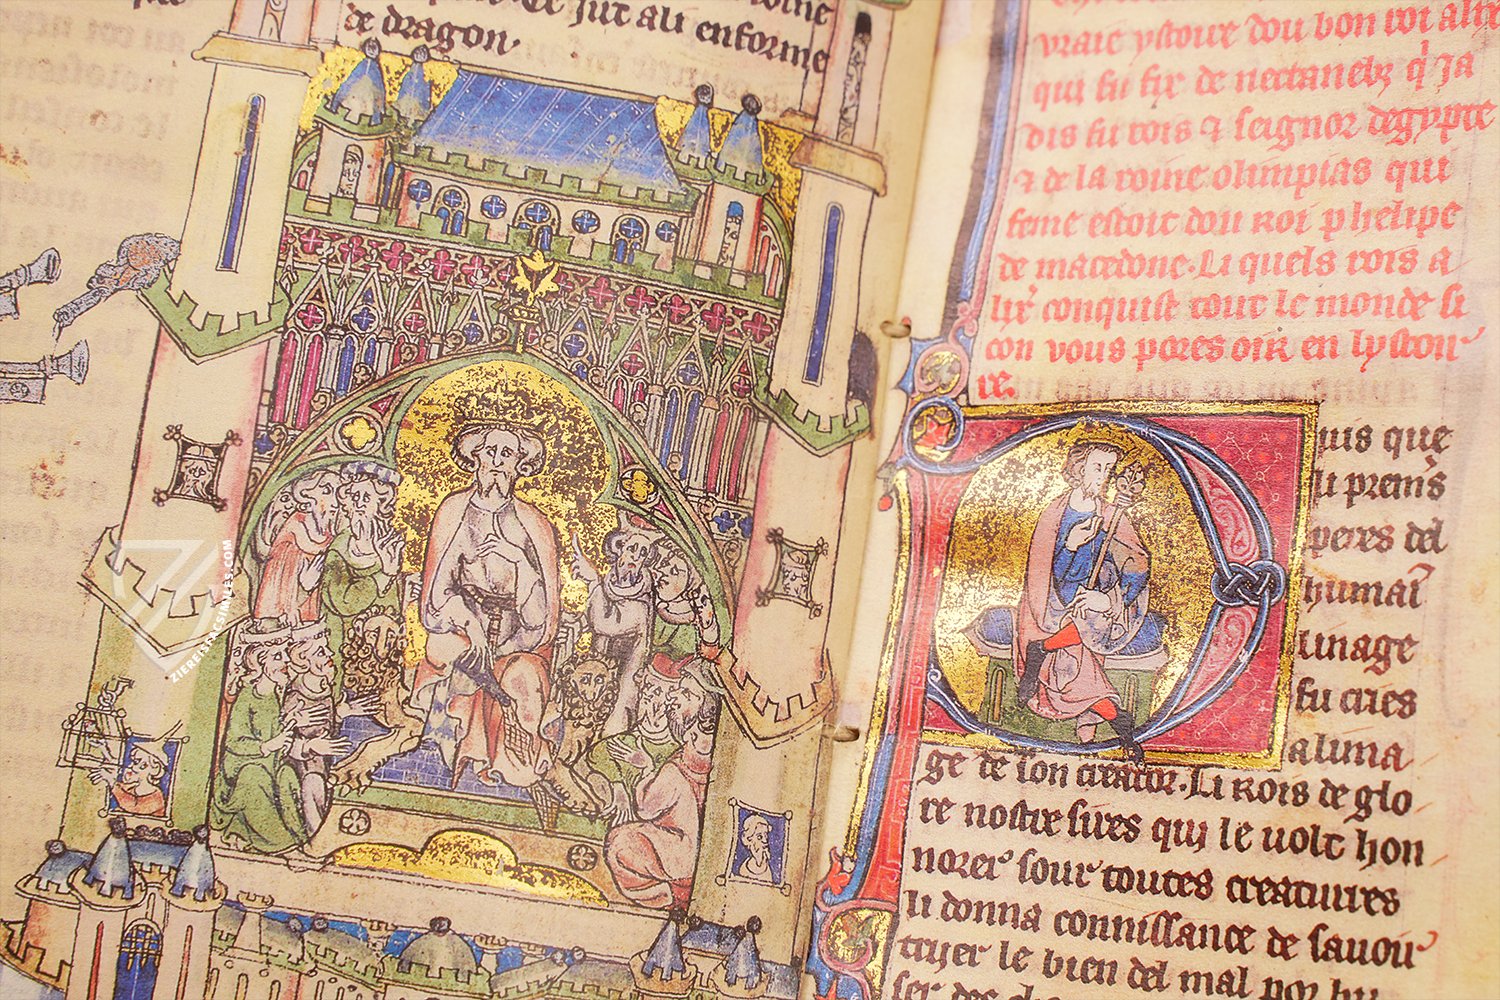 de dragon.
vraie ystoire dou bon roi alix
qui fu fix de nectanebz q̓ ja
dis fu rois ⁊ seignor degypte
⁊ de la roine olimpias qui
feme estoit dou roi phelipe
de macedone. Li quels rois a
lix̓ conquist tout le monde si
con vous pores oir en lystoi
re.
Puis que
li prem̓s
peres del
humai
linage
fu cries
a lima
ge de son creator. Li Rois de glo
re nostre sires qui le volt hon
norer sour toutes creatures
li donna connissance de savoir
trier le bien del mal por
ZIEREIS FACSIMILES.COM